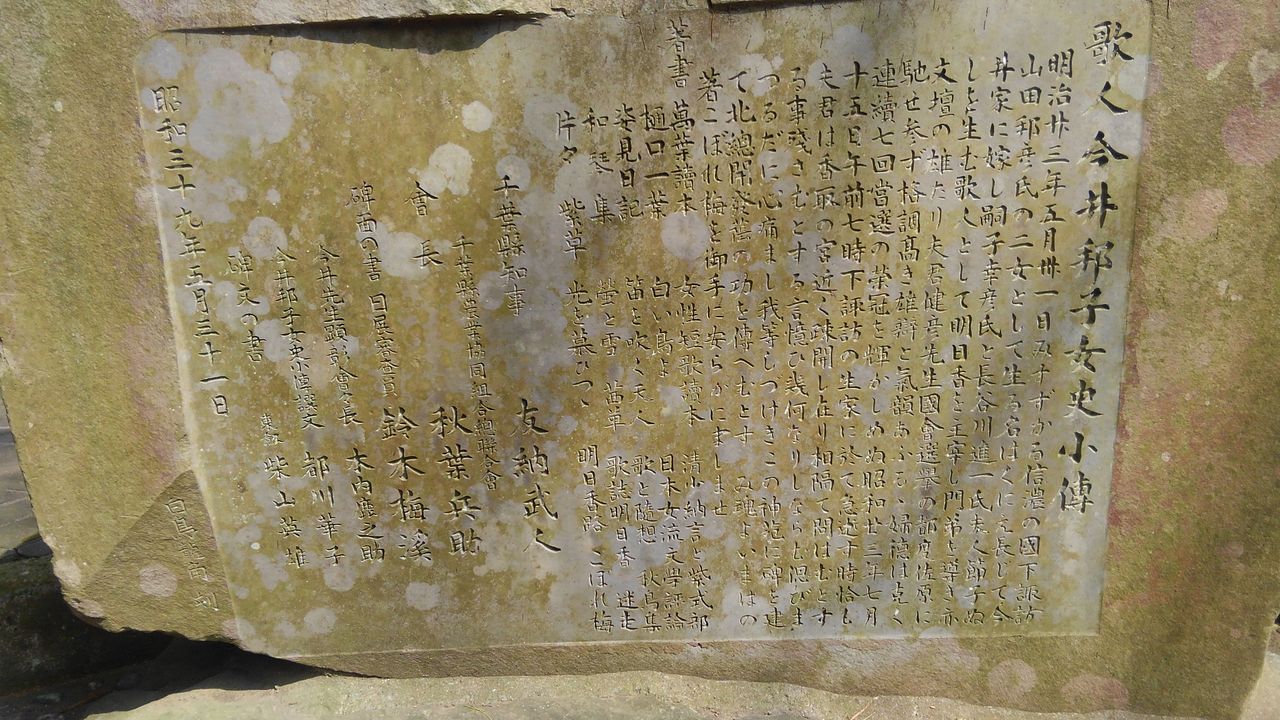 歌人今井邦子女史小傳
明治廿三年五月卅一日みすずかる信濃の國下諏訪
山田邦彦氏の二女として生る名はくに え長じて今
井家に嫁し嗣子幸彦氏と長谷川進一氏夫人節子ぬ
しを生む歌人として明日香を主宰し門弟を導き亦
文壇の雄たり夫君健彦先生國會選擧の都度佐原に
馳せ参ず格調髙き雄辯と氣韻あふるゝ婦徳は克く
連續七回當選の榮冠を輝かしめぬ昭和廿三年七月
十五日午前七時下諏訪の生家に於て急逝す時恰も
夫君は香取の宮近く疎開し在り相隔て問はむとす
る事残さむとする言憶ひ幾何なりしならむ偲びま
つるだに心痛まし我等しつけきこの神苑に碑を建
て北總開發蔭の功を傳へむとす み魂よいまはの
著こぼれ梅を御手に安らかにましませ
著書 萬葉讀本 女性短歌讀本 清少納言と紫式部
樋口一葉 白い鳥よ 日本女流文學評論
姿見日記 笛を吹く天人 歌と隨想 秋鳥集
和琴集 螢と雪 茜草 歌誌明日香 迷走
片々 紫草 光を慕ひつゝ 明日香路 こぼれ梅
千葉縣知事 友納武人
千葉縣農業協同組合 聯合會
會長 秋葉兵助
碑面の書 日展審査員 鈴木梅溪
今井先生顕彰會々長 木内 之助
今井邦子女史小傳撰文 都川華子
碑文の書 柴山英雄
昭和三十九年五月三十一日
刻